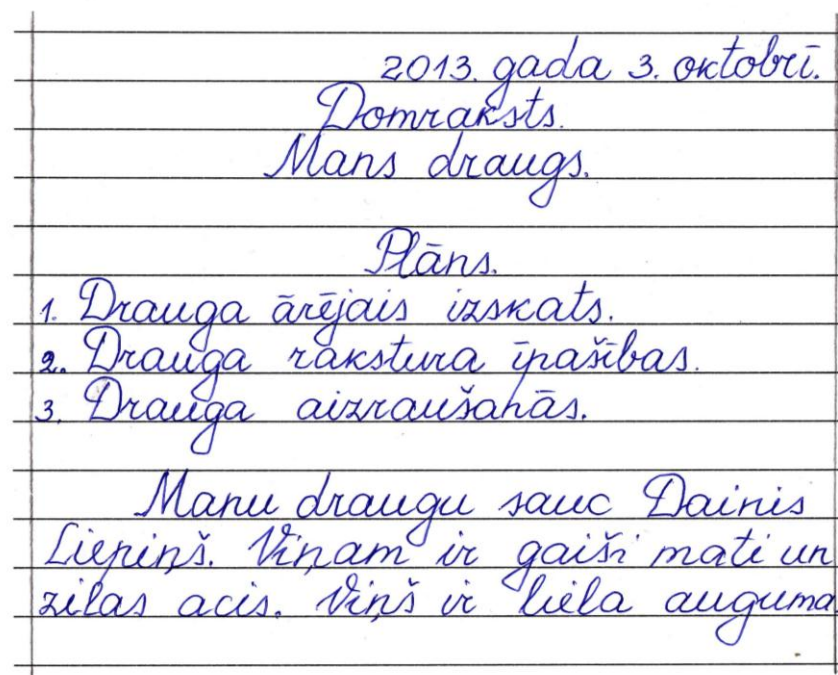 2013. gada 3. oktobrī.
Domraksts.
Mans draugs.
Plāns.
1. Drauga ārējais izskats.
2. Drauga rakstura īpašības.
3. Drauga aizraušanās.
Manu draugu sauc Dainis
Liepiņš. Viņam ir gaiši mati un
zilas acis. Viņš ir liela auguma.